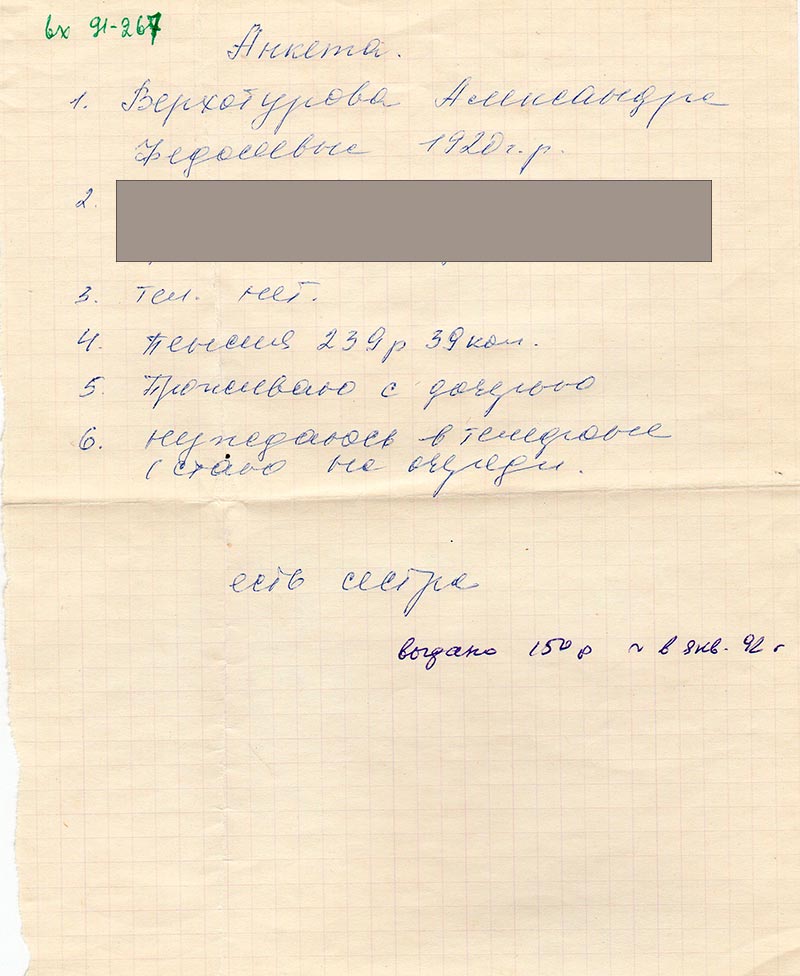 вх 91-267
Анкета.
1. Верхотурова Александра
Федосеевна 1920 г.р.
2.
3. тел. нет.
4. Пенсия 239р 39коп.
5. Проживаю с дочерью
6. нуждаюсь в телефоне
(стаю на очереди.
есть сестра
выдано 150 р ~ в янв. 92 г